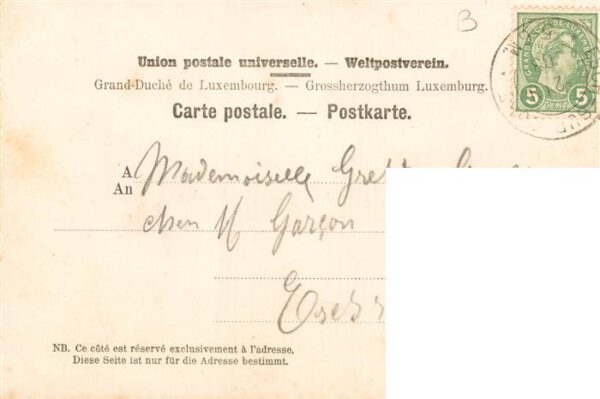 B
Union postale universelle. — Weltpostverein.
Grand-Duché de Luxembourg. — Grossherzogthum Luxemburg.
Carte postale. — Postkarte.
5 CENT. 5
A Mademoiselle
An
Garçon
NB. Ce côté est réservé exclusivement à l'adresse.
Diese Seite ist nur für die Adresse bestimmt.